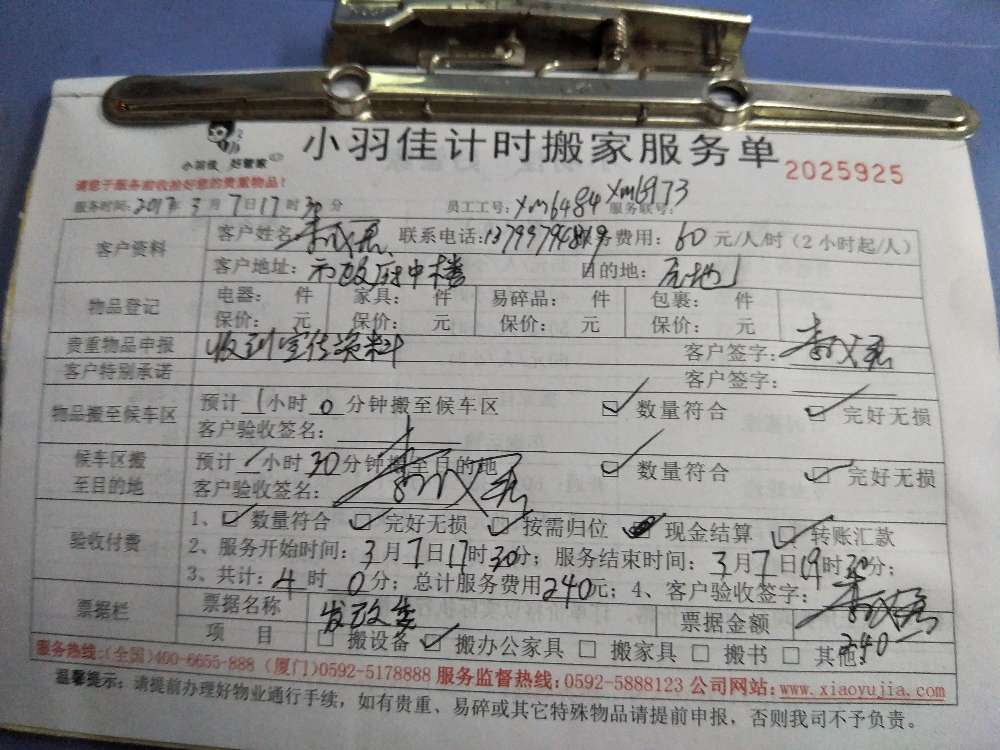 小羽佳 好管家
小羽佳计时搬家服务单 2025925
请您于服务前收拾好您的贵重物品！
服务时间：2017年3月7日17时30分 员工工号：XM6484 XM6973 服务联号：
客户资料 客户姓名： 联系电话： 服务费用：60元/人/时（2小时起/人）
客户地址：市政府中楼 目的地：
物品登记 电器： 件 家具： 件 易碎品： 件 包裹： 件
保价： 元 保价： 元 保价： 元 保价： 元
贵重物品申报 收到宣传资料 客户签字：
客户特别承诺 客户签字：
物品搬至候车区 预计1小时0分钟搬至候车区 ☑数量符合 ☑完好无损
客户验收签名：
候车区搬至目的地 预计1小时30分钟搬至目的地 ☑数量符合 ☑完好无损
客户验收签名：
验收付费 1、☑数量符合 ☑完好无损 ☑按需归位 现金结算 ☑转账汇款
2、服务开始时间：3月7日17时30分；服务结束时间：3月7日19时30分；
3、共计：4时0分；总计服务费用240元；4、客户验收签字：
票据栏 票据名称 发改委 票据金额 240
项 目 □搬设备 ☑搬办公家具 □搬家具 □搬书 □其他：
服务热线：（全国）400-6655-888（厦门）0592-5178888 服务监督热线：0592-5888123 公司网站：www.xiaoyujia.com
温馨提示：请提前办理好物业通行手续，如有贵重、易碎或其它特殊物品请提前申报，否则我司不予负责。